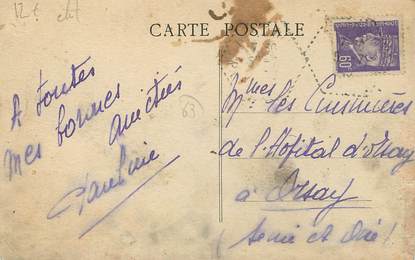 12 €
CARTE POSTALE
60
A toutes
mes bonnes
amitiés
Pauline
63
Mmes les Cuisinières
de l'Hôpital d'Orsay
à Orsay
(Seine et Oise)